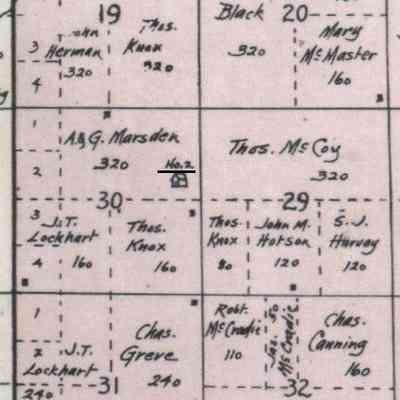 19
John
Herman
320
Thos.
Knox
320
3
4
Black
320
20
Mary
McMaster
160
1
2
A&G. Marsden
320
No.2
Thos. McCoy
320
30
29
3
4
J.T.
Lockhart
160
Thos.
Knox
160
Thos.
Knox
80
John M.
Hotson
120
S. J.
Harvey
120
1
2
J.T.
Lockhart
240
Chas.
Greve
240
31
Robt.
McCradie
110
Jas.
McCradie
50
Chas.
Canning
160
32